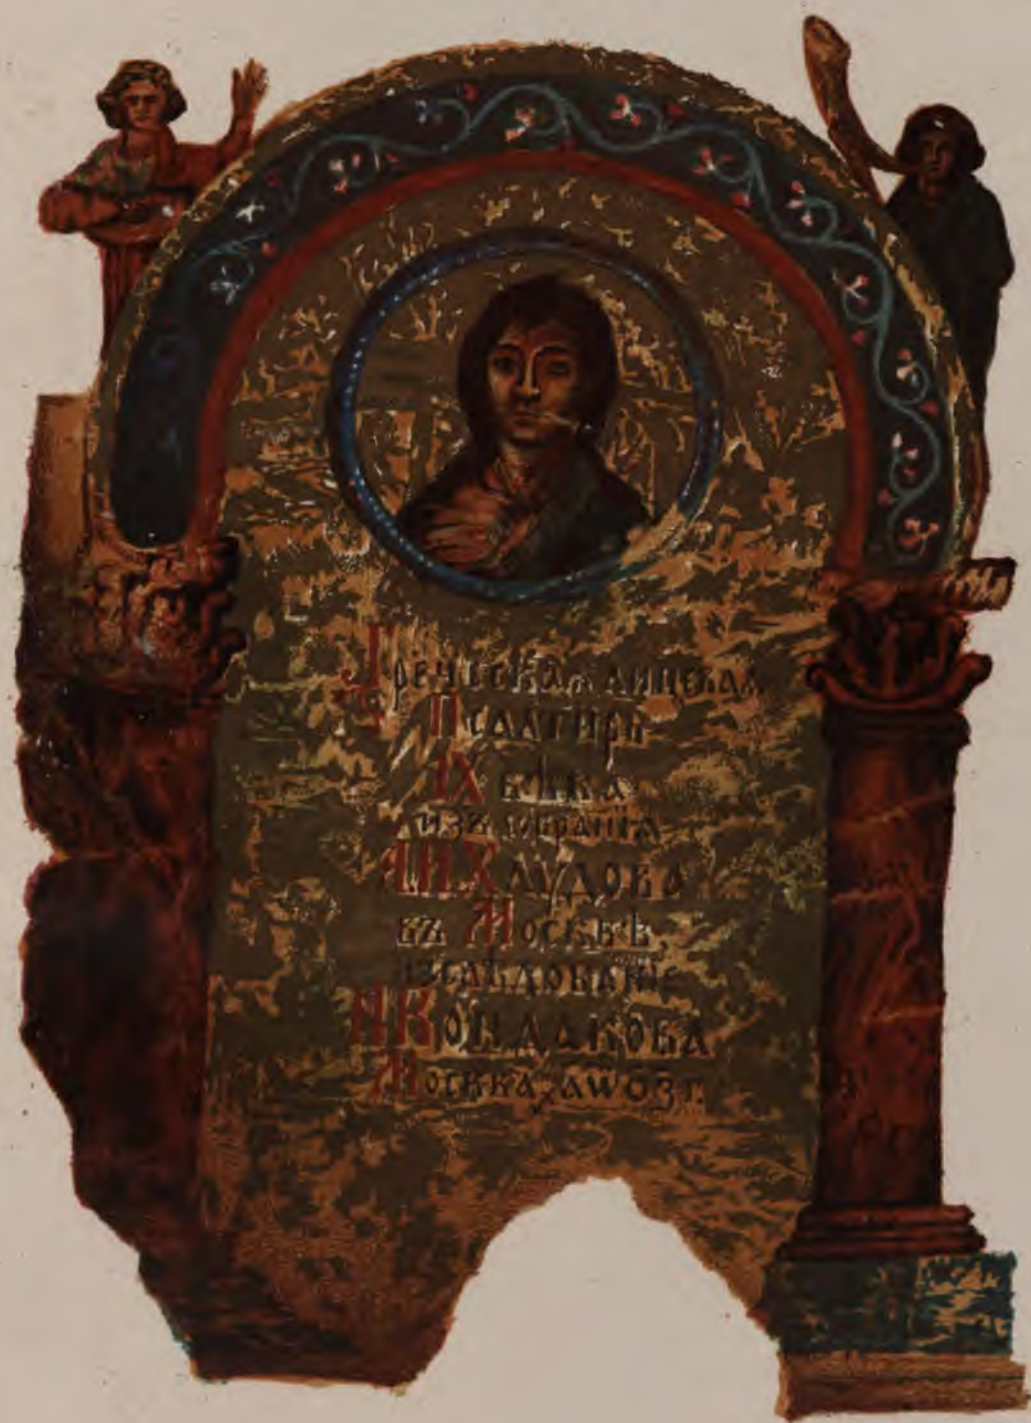 Греческая лицевая
Псалтирь
IX вѣка
изъ собранія
А И Хлудова
въ Москвѣ,
изслѣдованіе
Н Кондакова
Москва, ҂аѿоз г.